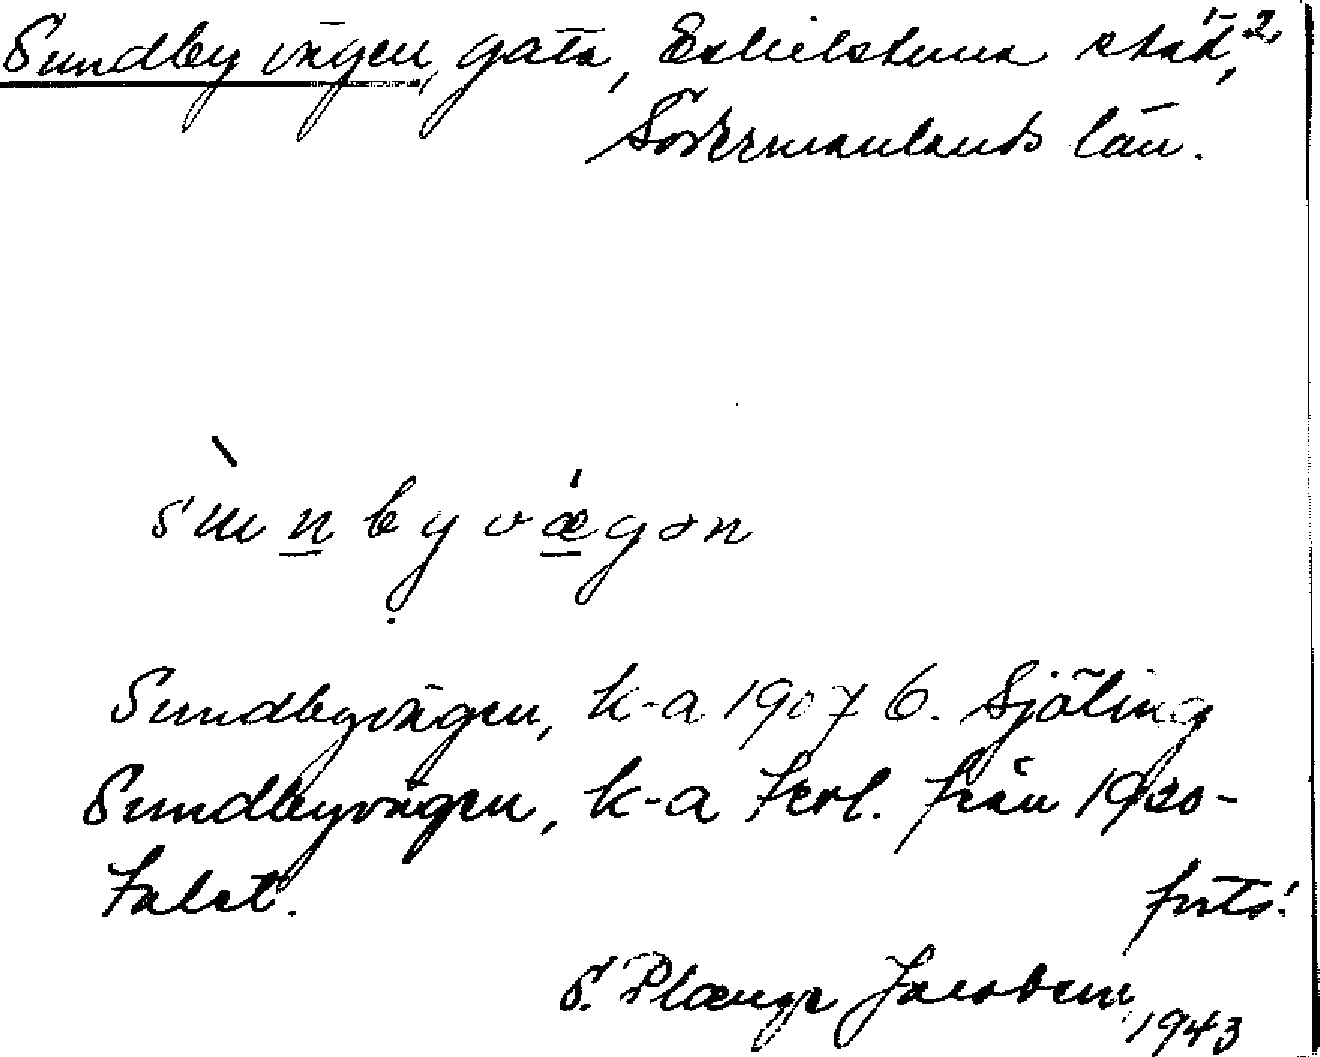 Sundbyvägen, gata, Eskilstuna stad, 2
Södermanlands län.
sùnbyvǽgən
Sundbyvägen, k-a 1907 G. Sjöling
Sundbyvägen, k-a förl. från 1920-
talet.
forts!
S. Plænge Jacobsen
1943